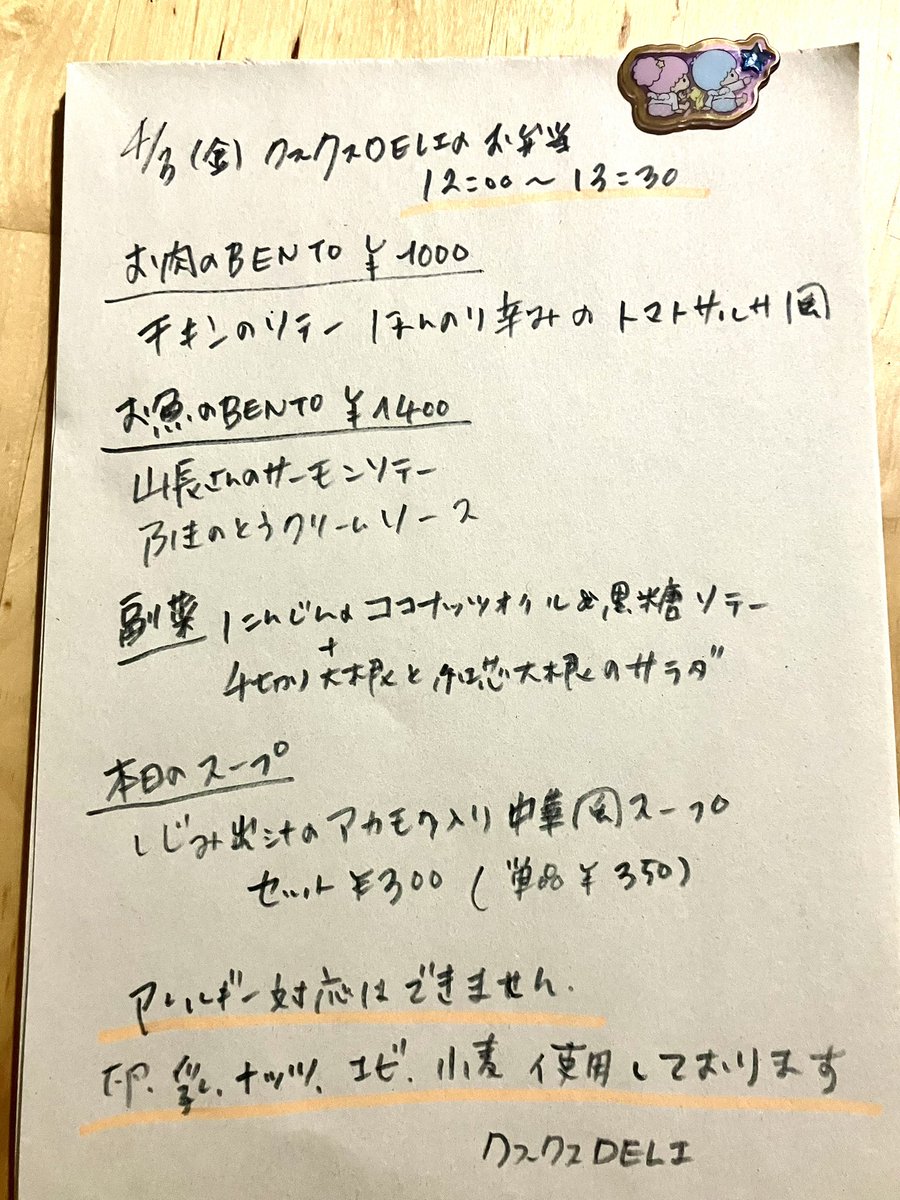 4/3(金) クスクスDELIの お弁当
12:00〜13:30
お肉のBENTO ¥1000
チキンのソテー ほんのり辛みの トマトサルサ風
お魚のBENTO ¥1400
山長さんのサーモンソテー
ふきのとうクリームソース
副菜 にんじんの ココナッツオイル& 黒糖ソテー
+
大根と 紅芯大根のサラダ
本日のスープ
しじみ出汁のアカモク入り 中華風スープ
セット ¥300 (単品 ¥350)
アレルギー対応はできません.
卵、乳、ナッツ、エビ、小麦 使用しております
クスクスDELI